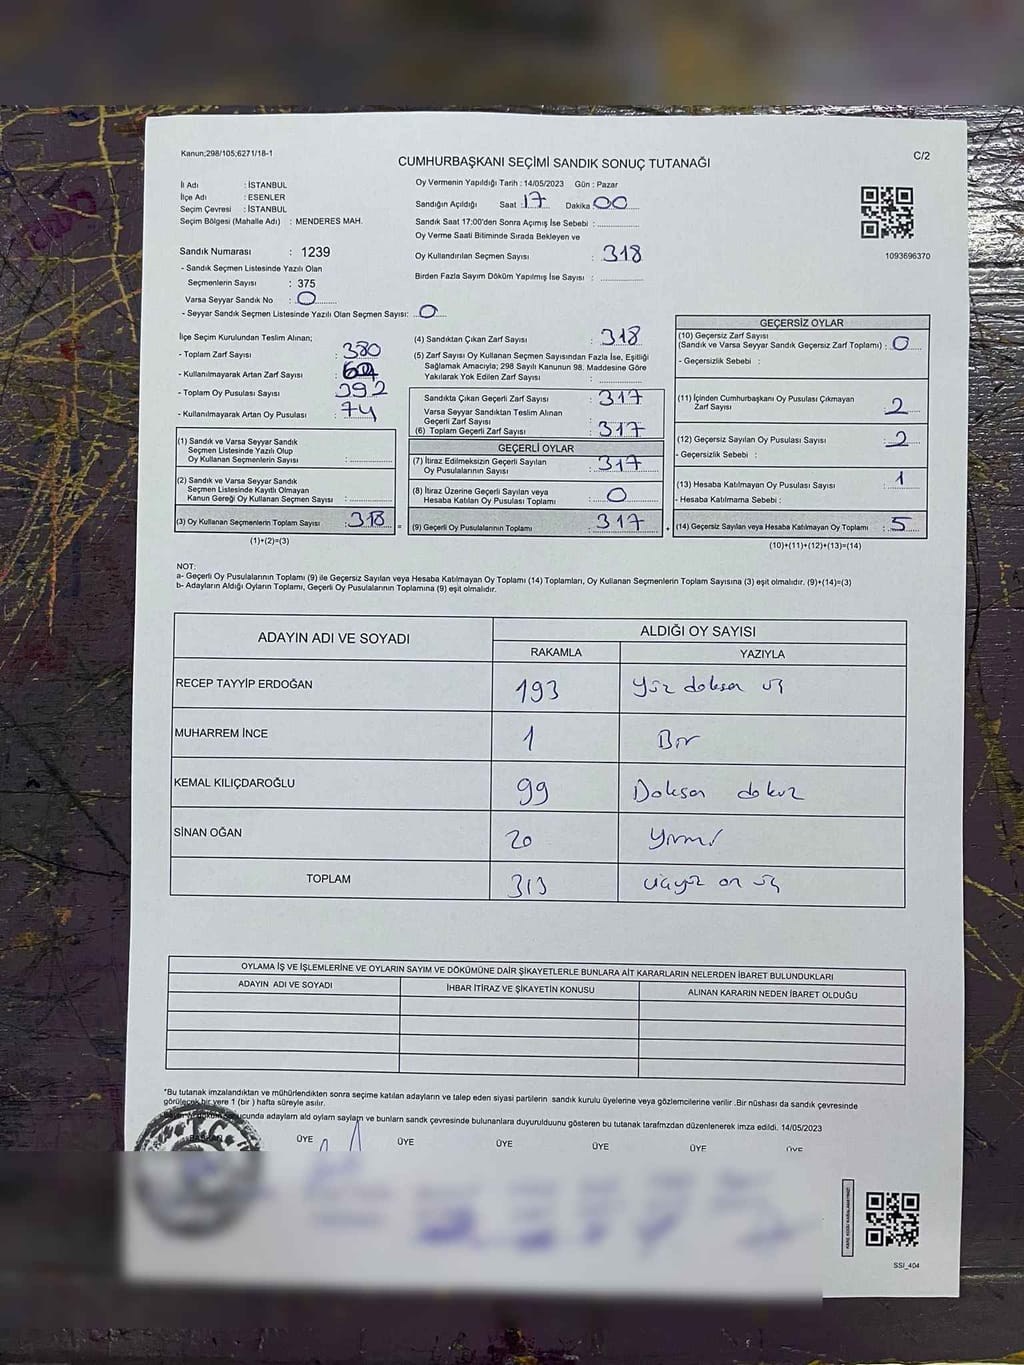 Kanun;298/105;6271/18-1
C/2
CUMHURBAŞKANI SEÇİMİ SANDIK SONUÇ TUTANAĞI
İl Adı : İSTANBUL
İlçe Adı : ESENLER
Seçim Çevresi : İSTANBUL
Seçim Bölgesi (Mahalle Adı) : MENDERES MAH.
Sandık Numarası : 1239
- Sandık Seçmen Listesinde Yazılı Olan
Seçmenlerin Sayısı : 375
Varsa Seyyar Sandık No : 0
- Seyyar Sandık Seçmen Listesinde Yazılı Olan Seçmen Sayısı: 0
Oy Vermenin Yapıldığı Tarih : 14/05/2023 Gün : Pazar
Sandığın Açıldığı Saat : 17 Dakika 00
Sandık Saat 17:00'den Sonra Açımış İse Sebebi :
Oy Verme Saati Bitiminde Sırada Bekleyen ve
Oy Kullandırılan Seçmen Sayısı : 318
Birden Fazla Sayım Döküm Yapılmış İse Sayısı :
1093696370
İlçe Seçim Kurulundan Teslim Alınan;
- Toplam Zarf Sayısı : 380
- Kullanılmayarak Artan Zarf Sayısı :
- Toplam Oy Pusulası Sayısı : 392
- Kullanılmayarak Artan Oy Pusulası : 74
(1) Sandık ve Varsa Seyyar Sandık
Seçmen Listesinde Yazılı Olup
Oy Kullanan Seçmenlerin Sayısı :
(2) Sandık ve Varsa Seyyar Sandık
Seçmen Listesinde Kayıtlı Olmayan
Kanun Gereği Oy Kullanan Seçmen Sayısı :
(3) Oy Kullanan Seçmenlerin Toplam Sayısı : 318 =
(1)+(2)=(3)
(4) Sandıktan Çıkan Zarf Sayısı : 318
(5) Zarf Sayısı Oy Kullanan Seçmen Sayısından Fazla İse, Eşitliği
Sağlamak Amacıyla; 298 Sayılı Kanunun 98. Maddesine Göre
Yakılarak Yok Edilen Zarf Sayısı :
Sandıkta Çıkan Geçerli Zarf Sayısı : 317
Varsa Seyyar Sandıktan Teslim Alınan
Geçerli Zarf Sayısı :
(6) Toplam Geçerli Zarf Sayısı : 317
GEÇERLİ OYLAR
(7) İtiraz Edilmeksizin Geçerli Sayılan
Oy Pusulalarının Sayısı : 317
(8) İtiraz Üzerine Geçerli Sayılan veya
Hesaba Katılan Oy Pusulası Toplamı : 0
(9) Geçerli Oy Pusulalarının Toplamı : 317 +
GEÇERSİZ OYLAR
(10) Geçersiz Zarf Sayısı
(Sandık ve Varsa Seyyar Sandık Geçersiz Zarf Toplamı) : 0
- Geçersizlik Sebebi :
(11) İçinden Cumhurbaşkanı Oy Pusulası Çıkmayan
Zarf Sayısı : 2
(12) Geçersiz Sayılan Oy Pusulası Sayısı : 2
- Geçersizlik Sebebi :
(13) Hesaba Katılmayan Oy Pusulası Sayısı : 1
- Hesaba Katılmama Sebebi :
(14) Geçersiz Sayılan veya Hesaba Katılmayan Oy Toplamı : 5
(10)+(11)+(12)+(13)=(14)
NOT:
a- Geçerli Oy Pusulalarının Toplamı (9) ile Geçersiz Sayılan veya Hesaba Katılmayan Oy Toplamı (14) Toplamları, Oy Kullanan Seçmenlerin Toplam Sayısına (3) eşit olmalıdır. (9)+(14)=(3)
b- Adayların Aldığı Oyların Toplamı, Geçerli Oy Pusulalarının Toplamına (9) eşit olmalıdır.
ADAYIN ADI VE SOYADI ALDIĞI OY SAYISI
RAKAMLA YAZIYLA
RECEP TAYYİP ERDOĞAN 193 yüz doksan üç
MUHARREM İNCE 1 Bir
KEMAL KILIÇDAROĞLU 99 Doksan dokuz
SİNAN OĞAN 20 yirmi
TOPLAM 313 üçyüz on üç
OYLAMA İŞ VE İŞLEMLERİNE VE OYLARIN SAYIM VE DÖKÜMÜNE DAİR ŞİKAYETLERLE BUNLARA AİT KARARLARIN NELERDEN İBARET BULUNDUKLARI
ADAYIN ADI VE SOYADI İHBAR İTİRAZ VE ŞİKAYETİN KONUSU ALINAN KARARIN NEDEN İBARET OLDUĞU
*Bu tutanak imzalandıktan ve mühürlendikten sonra seçime katılan adayların ve talep eden siyasi partilerin sandık kurulu üyelerine veya gözlemcilerine verilir .Bir nüshası da sandık çevresinde
görülecek bir yere 1 (bir ) hafta süreyle asılır.
sonucunda adayların ald oyların sayları ve bunların sandk çevresinde bulunanlara duyurulduunu gösteren bu tutanak tarafmzdan düzenlenerek imza edildi. 14/05/2023
BAŞKAN ÜYE ÜYE ÜYE ÜYE ÜYE ÜYE
SSI_404